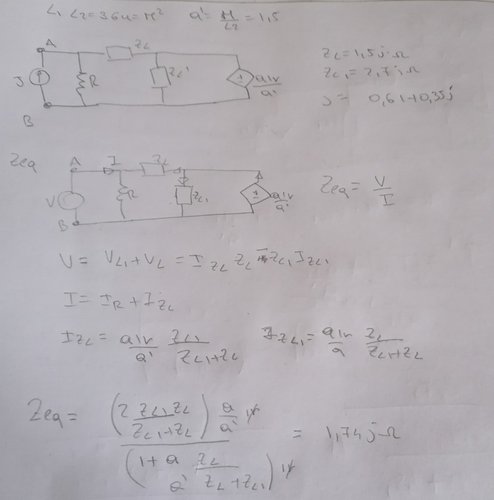 L₁ L₂=36u=M² a'=M/L2=1,5
A ZL
J R ZL' a1v/a'
B
ZL=1,5j Ω
ZL1=2,7j Ω
J= 0,61+0,35j
Zeq A I ZL
V R ZL1 a1v/a'
B
Zeq = V/I
V= VL1+VL = I ZL ZL + ZL1 I ZL1
I= IR + I ZL
I ZL= a1v/a' ZL1/(ZL1+ZL) I ZL1= a1v/a ZL/(ZL1+ZL)
Zeq= (2 ZL1 ZL/(ZL1+ZL)) a/a' / (1+a/a' ZL/(ZL+ZL1)) = 1,74j Ω